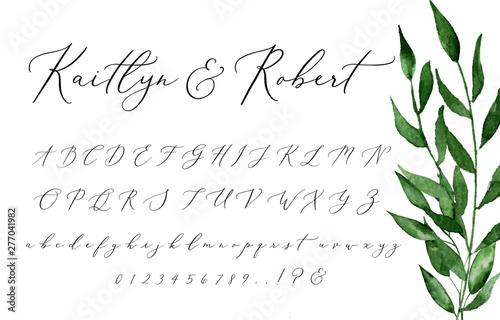 Kaitlyn & Robert
A B C D E F G H I J K L M N
O P Q R S T U V W X Y Z
a b c d e f g h i j k l m n o p q r s t u v w x y z
0 1 2 3 4 5 6 7 8 9 . , ! ? &
Adobe Stock | #277041982